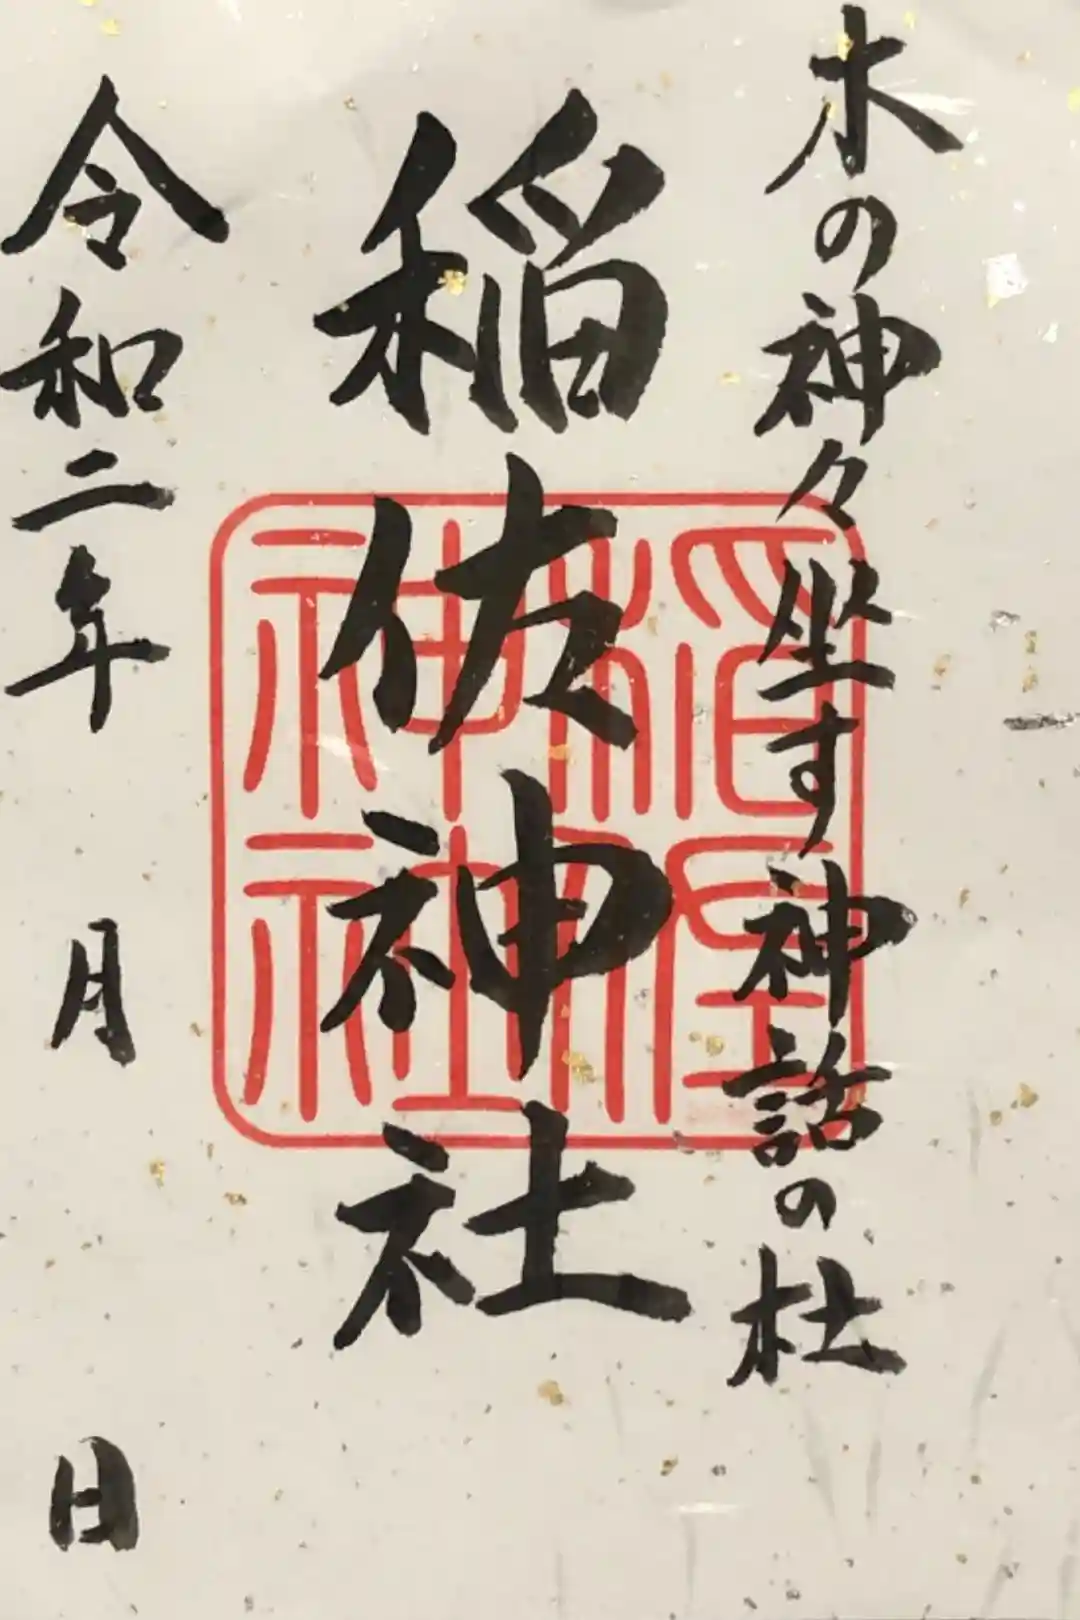 木の神々坐す神話の杜
稲佐神社
令和二年 月 日
稲佐神社